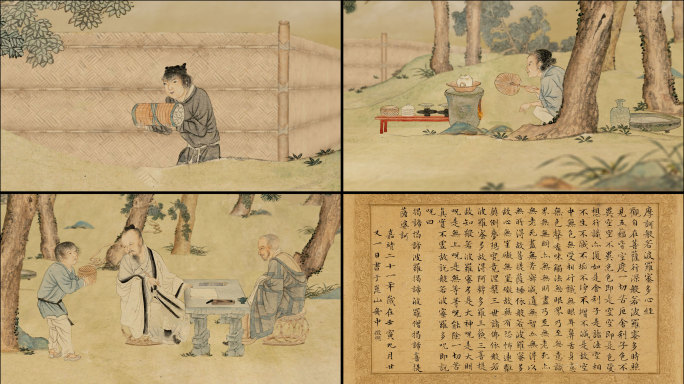 摩訶般若波羅蜜多心經
觀自在菩薩行深般若波羅蜜多時照
見五蘊皆空度一切苦厄舍利子色不
異空空不異色色即是空空即是色受
想行識亦復如是舍利子是諸法空相
不生不滅不垢不淨不增不減是故空
中無色無受想行識無眼耳鼻舌身意
無色聲香味觸法無眼界乃至無意識
界無無明亦無無明盡乃至無老死亦
無老死盡無苦集滅道無智亦無得以
無所得故菩提薩埵依般若波羅蜜多
故心無罣礙無罣礙故無有恐怖遠離
顛倒夢想究竟涅槃三世諸佛依般若
波羅蜜多故得阿耨多羅三藐三菩提
故知般若波羅蜜多是大神呪是大明
呪是無上呪是無等等呪能除一切苦
真實不虛故說般若波羅蜜多呪即說
呪曰
揭諦揭諦波羅揭諦波羅僧揭諦菩提
薩婆訶
嘉靖二十一年歲在壬寅九月廿
又一日書于崑山舟中